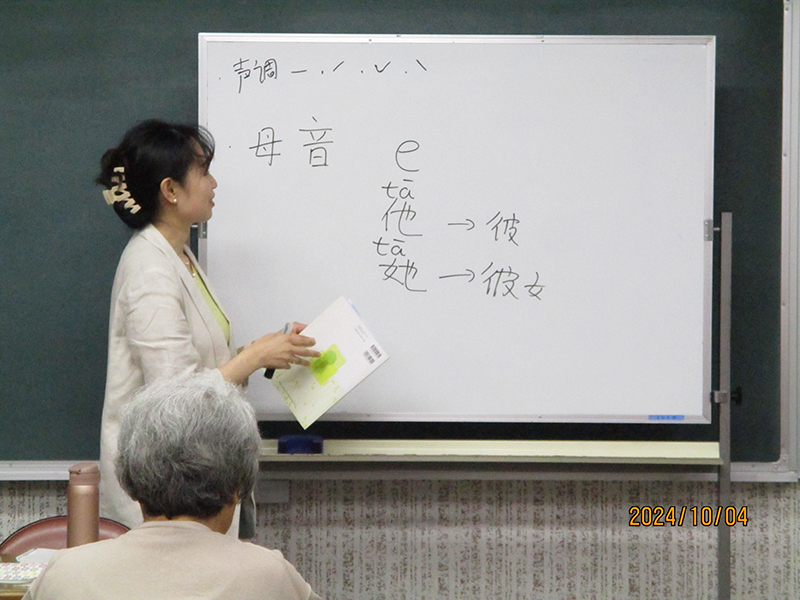 ・声调 ー ・／ ・∨ ・＼
・母音 e
tā
他 → 彼
tā
她 → 彼女
2024/10/04